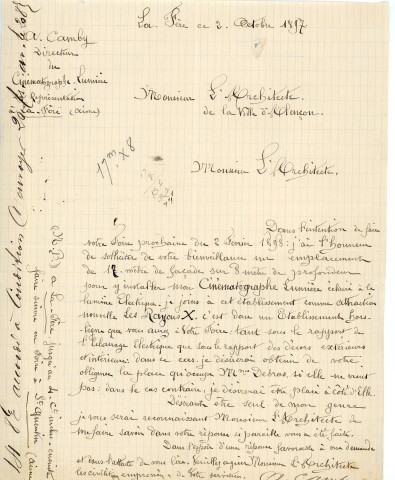 La Fère ce 2. Octobre 1897
A. Camby
Directeur
du
Cinématographe Lumière
Représentation
La Fère (Aisne)
Monsieur L'Architecte.
de la Ville d'Alençon.
17m x 8
Monsieur L'Architecte.
Dans l'intention de faire
votre Foire prochaine du 2 Février 1898: j'ai l'honneur
de solliciter de votre bienveillance un emplacement
de 17. mètre de façade sur 8 mètre de profondeur
pour y installer mon Cinématographe Lumière éclairé à la
lumière électrique, je joins à cet établissement comme attraction
nouvelle Les Rayons X. c'est donc un Etablissement hors-
ligne que vous aurez à Votre Foire, tant sous le rapport de
l'Eclairage Electrique que sous le rapport des décors extérieurs
et intérieurs; dans ce cas, je désirerai obtenir de votre
obligeance la place qu'occupe Mme Debras, si elle ne vient
pas: dans le cas contraire, je désirerai être placé à côté d'Elle.
Désirant être seul de mon genre
je vous serai reconnaissant Monsieur L'Architecte de
me faire savoir dans votre réponse si pareille vous a été faite.
Dans l'espoir d'une réponse favorable à ma demande
et dans l'attente de vous lire, Veuillez agréer Monsieur L'Architecte
les civilités empressées de Votre serviteur.
A. Camby
(N.B.) à La Fère jusqu'au
faire suivre en Foire à St Quentin (Aisne)